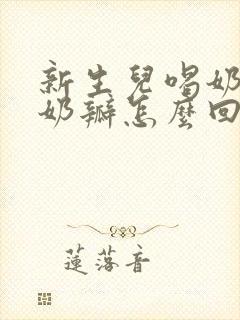 新生兒喝奶
奶瓣怎麼回
蓮落音